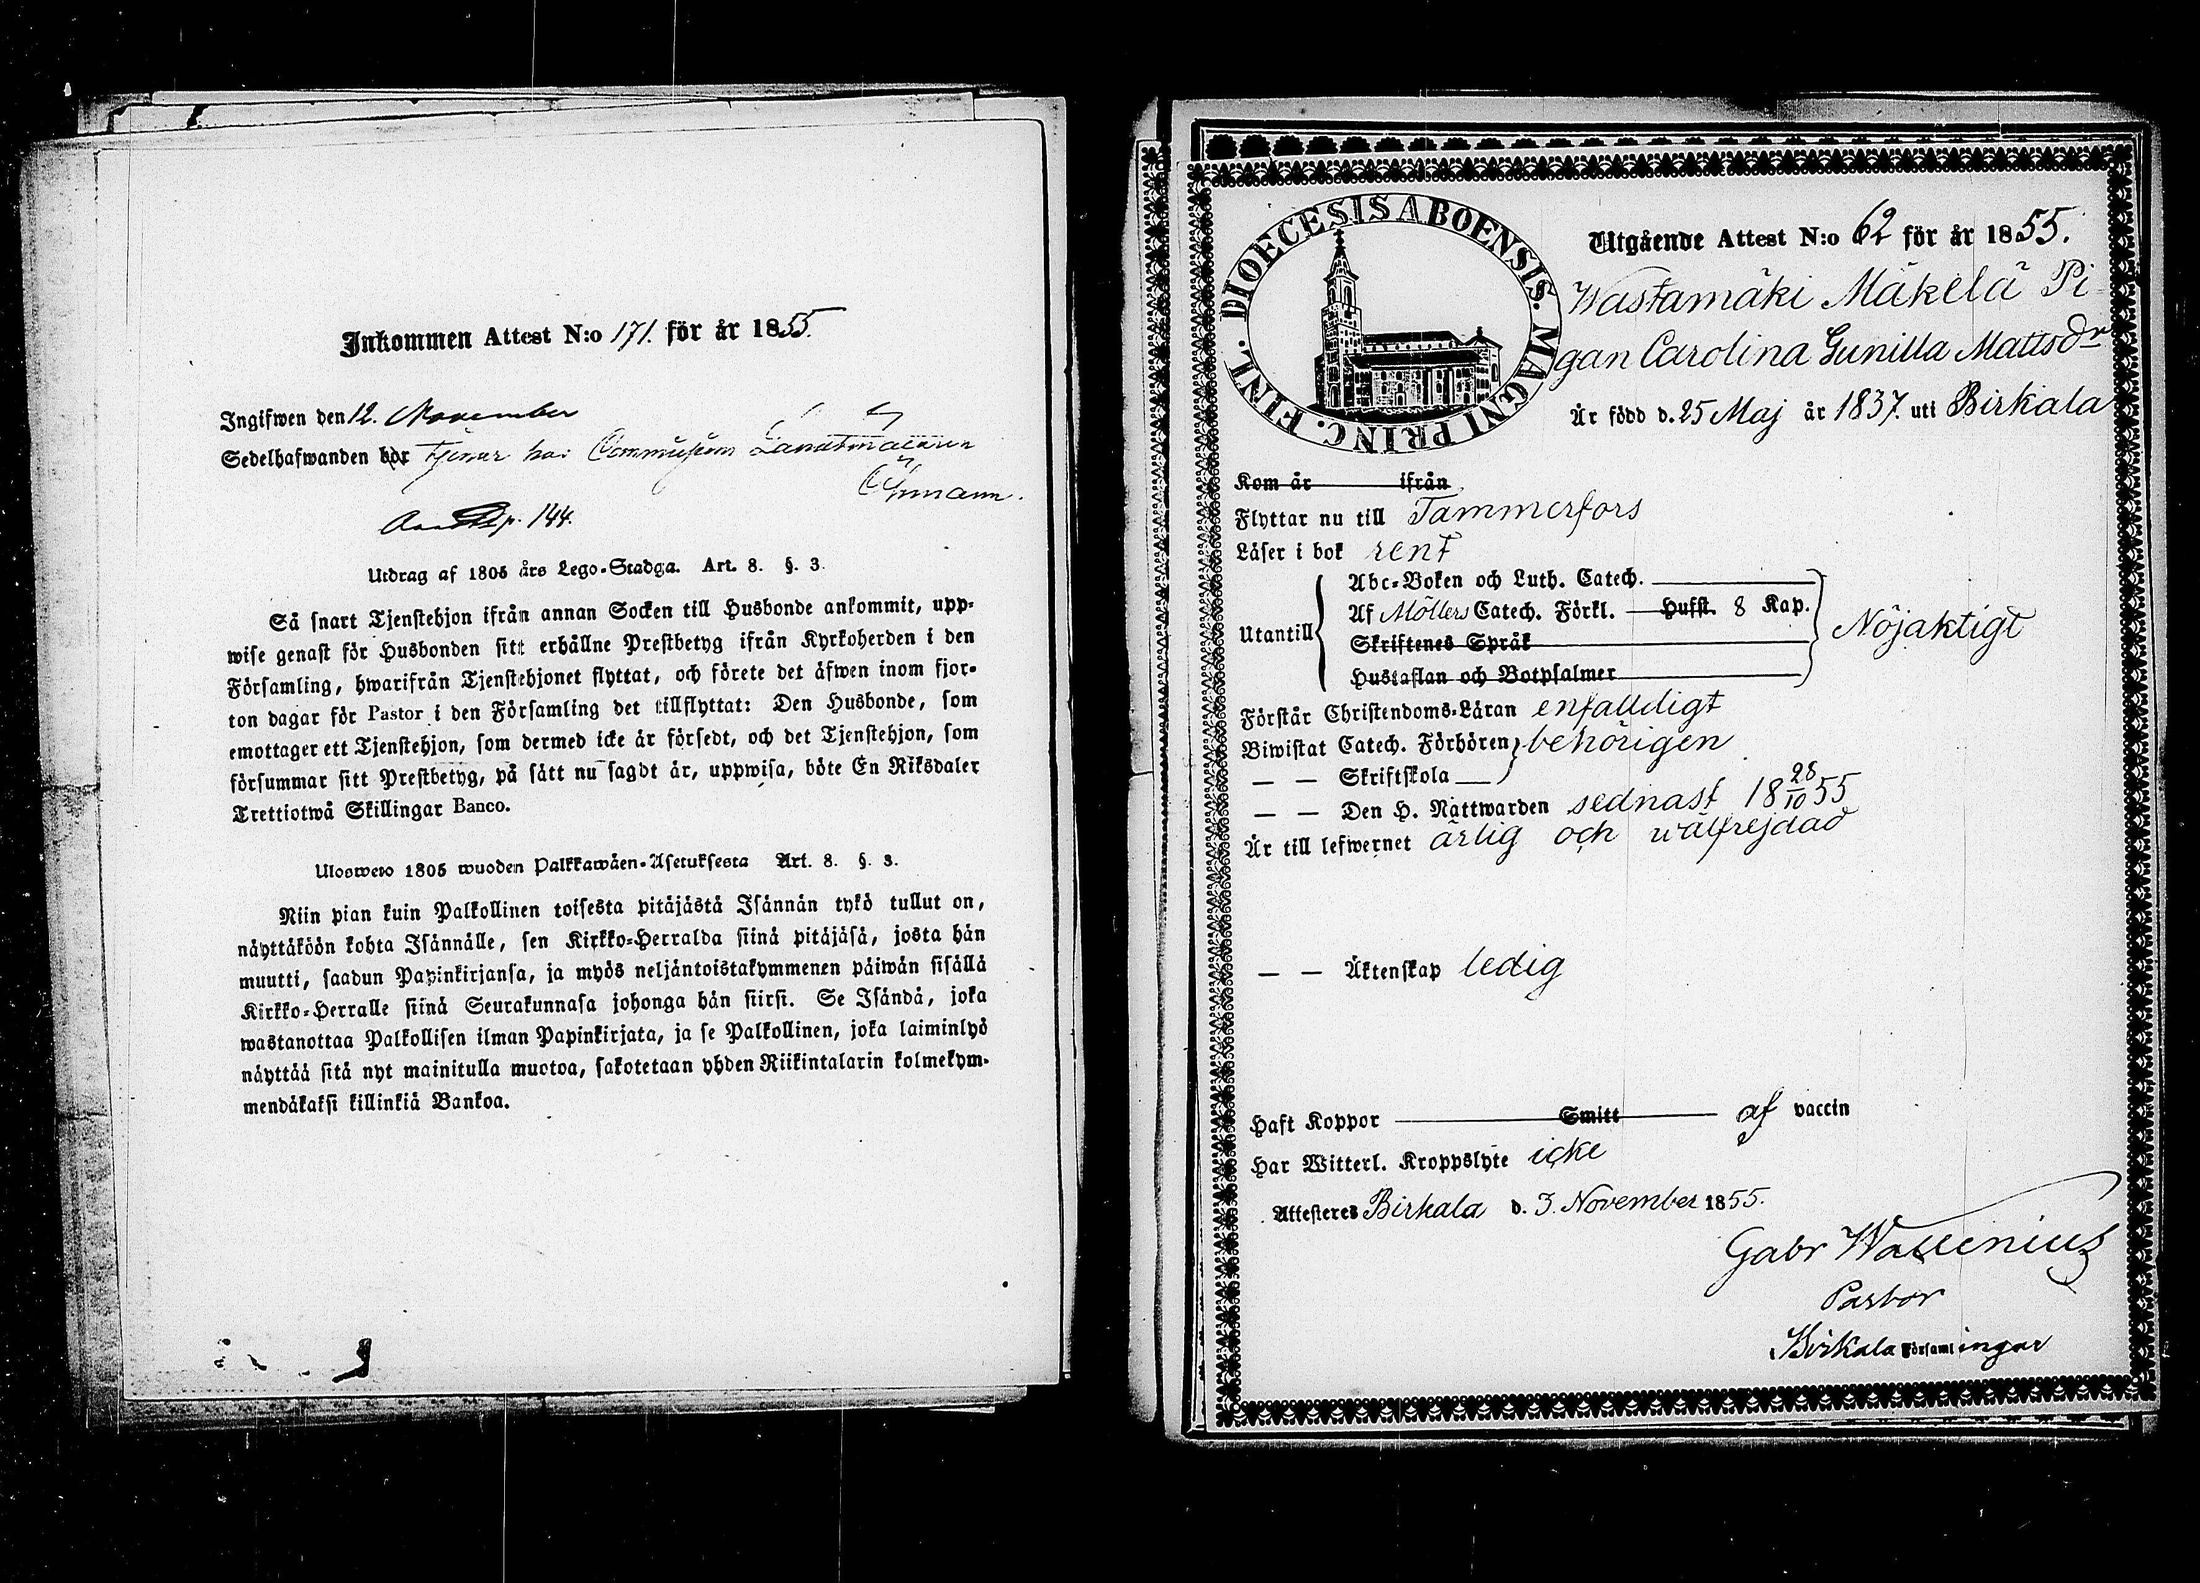 Inkommen Attest N:o 171. för år 1855.
Ingifwen den 12. November
Sedelhafwanden bor tjenar hos Commissions Landtmätaren
Öhmann.
p. 144.
Utdrag af 1805 års Lego-Stadga. Art. 8. §. 3.
Så snart Tjenstehjon ifrån annan Socken till Husbonde ankommit, upp-
wise genast för Husbonden sitt erhållne Prestbetyg ifrån Kyrkoherden i den
Församling, hwarifrån Tjenstehjonet flyttat, och förete det äfwen inom fjor-
ton dagar för Pastor i den Församling det tillflyttat: Den Husbonde, som
emottager ett Tjenstehjon, som dermed icke är försedt, och det Tjenstehjon, som
försummar sitt Prestbetyg, på sätt nu sagdt är, uppwisa, böte En Riksdaler
Trettiotwå Skillingar Banco.
Ulosweto 1805 wuoden Palkkawäen-Asetuksesta Art. 8. §. 3.
Niin pian kuin Palkollinen toisesta pitäjästä Isännän tykö tullut on,
näyttäköön kohta Isännälle, sen Kirkko-Herralda siinä pitäjäsä, josta hän
muutti, saadun Papinkirjansa, ja myös neljäntoistakymmenen päiwän sisällä
Kirkko-Herralle siinä Seurakunnasa johonga hän siirsi. Se Isändä, joka
wastanottaa Palkollisen ilman Papinkirjata, ja se Palkollinen, joka laiminlyö
näyttää sitä nyt mainitulla muotoa, sakotetaan yhden Riikintalarin kolmekym-
mendäkaksi killinkiä Bankoa.
DIOECESIS ABOENSIS. MAGNI PRINC. FINL.
Utgående Attest N:o 62 för år 1855.
Wastamäki Mäkelä Pi-
gan Carolina Gunilla Mattsdr
Är född d. 25 Maj år 1837. uti Birkala
Kom år ifrån
Flyttar nu till Tammerfors
Läser i bok rent
Utantill
Abc-Boken och Luth. Catech.
Af Möllers Catech. Förkl. Hufst. 8 Kap.
Skriftenes Språk
Hustaflan och Botpsalmer
Nöjaktigt
Förstår Christendoms-Läran enfalldigt
Biwistat Catech. Förhören behörigen
— — Skriftskola
— — Den H. Nattwarden sednast 18 28/10 55
Är till lefwernet ärlig och wälfrejdad
— — Äktenskap ledig
Haft Koppor Smitt af vaccin
Har Witterl. Kroppslyte icke
Attesteres Birkala d. 3. November 1855.
Gabr Wallenius
Pastor
Birkala Församlingar